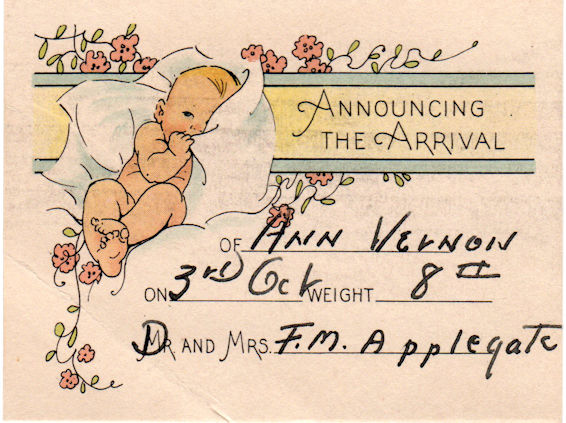 ANNOUNCING
THE ARRIVAL
OF ANN VERNON
ON 3rd Oct WEIGHT 8 II
DR AND MRS. F.M. Applegate